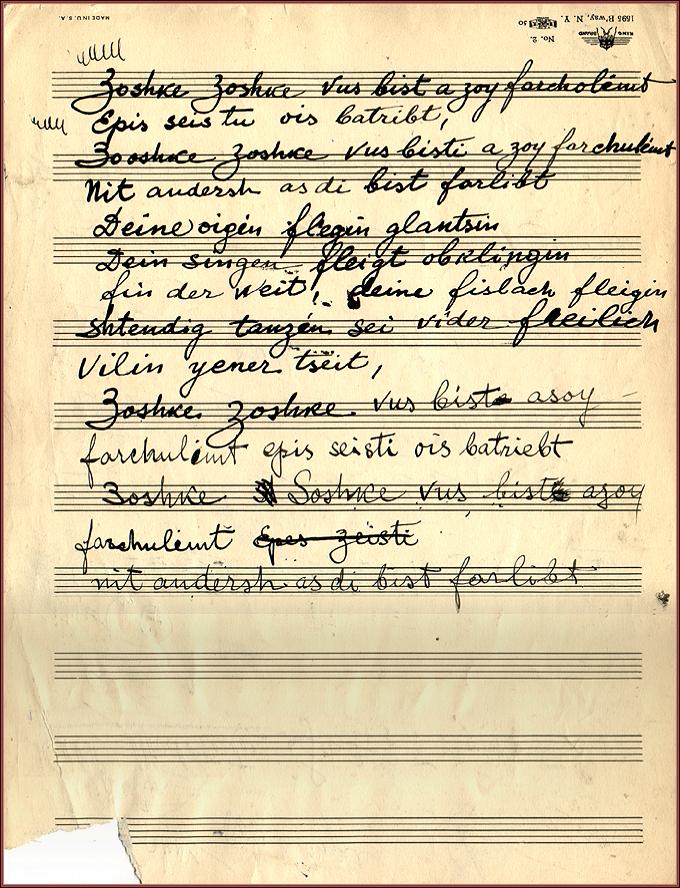 MADE IN U.S.A.
1695 B'way, N.Y.
KING BRAND
No. 2.
Zoshke Zoshke vus bist a zoy farcholemt
Epis seis tu ois batribt,
Zooshke Zoshke vus bisti a zoy farchulemt
Nit andersh as di bist farlibt
Deine oigen flegin glantsin
Dein singen fleigt obklingin
fin der weit, deine fislach fleigin
shtendig tanzen sei vider freilich
Vilin yener tseit,
Zoshke Zoshke vus bist asoy
farchulemt epis seisti ois batriebt
Zoshke Soshke vus bist asoy
farchulemt Epes zeisti
nit andersh as di bist farlibt